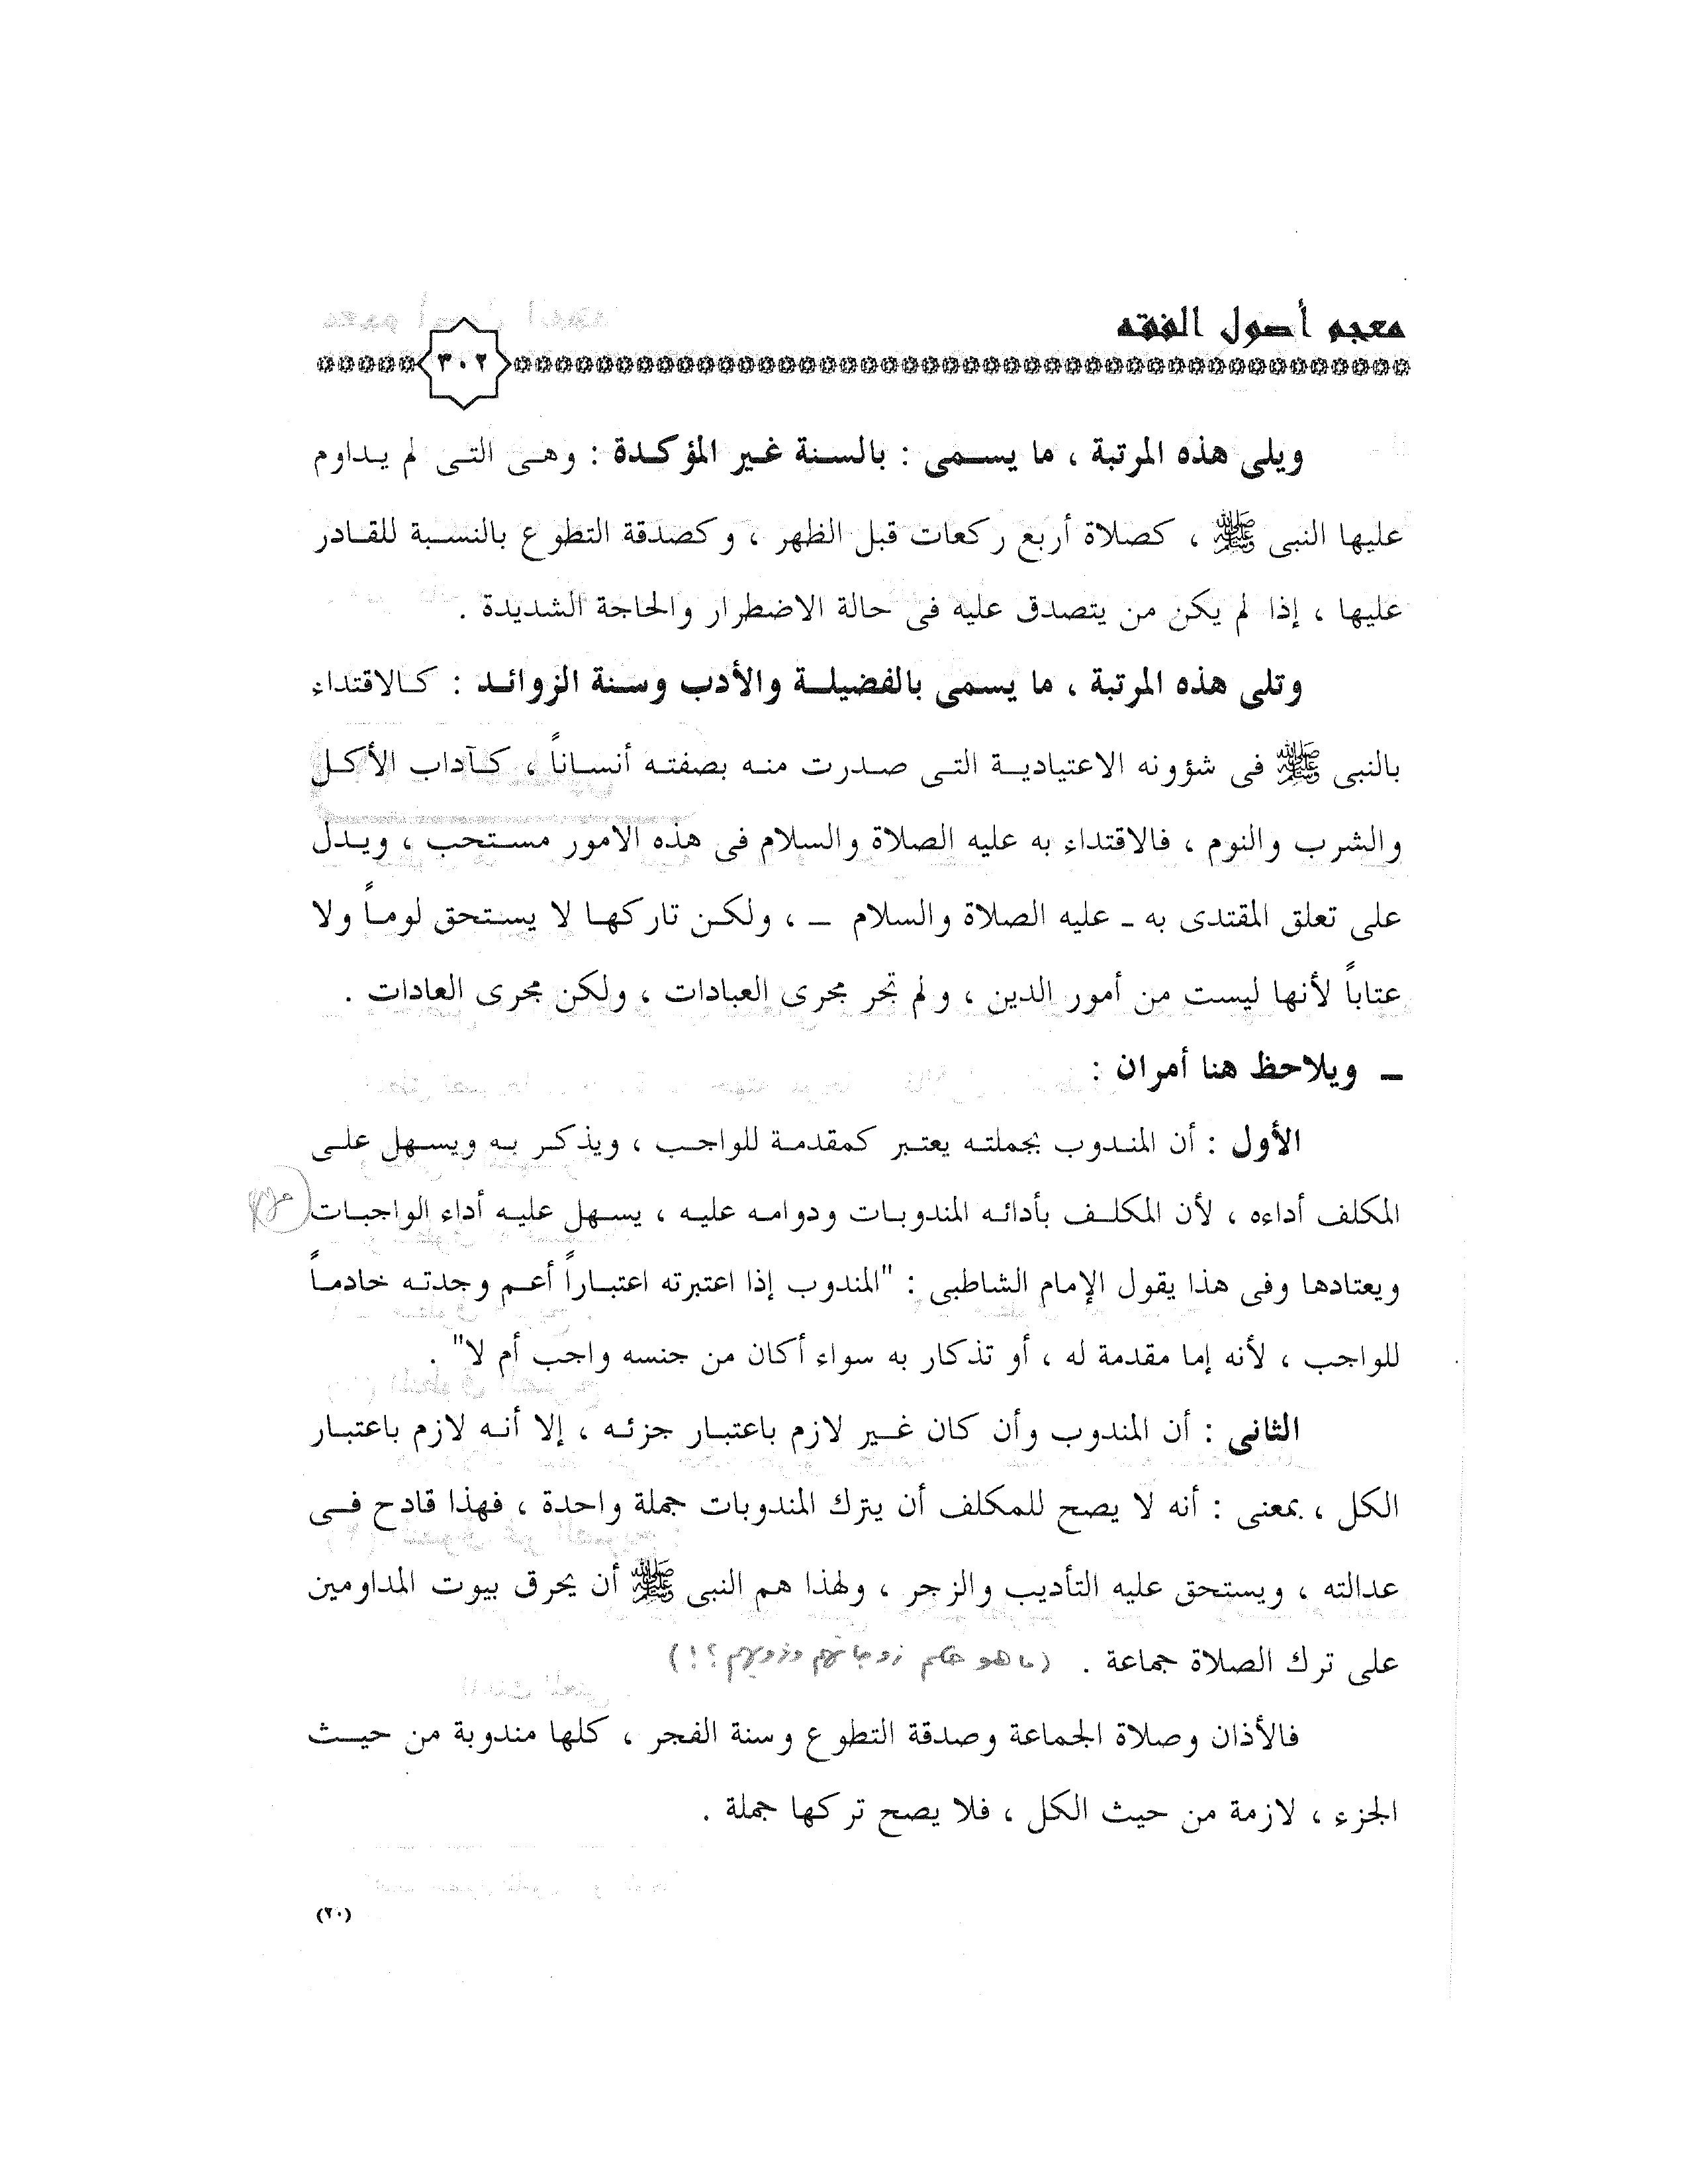 معجم أصول الفقه
٣٠٢
ويلى هذه المرتبة ، ما يسمى : بالسنة غير المؤكدة : وهى التى لم يداوم
عليها النبى ﷺ ، كصلاة أربع ركعات قبل الظهر ، وكصدقة التطوع بالنسبة للقادر
عليها ، إذا لم يكن من يتصدق عليه فى حالة الاضطرار والحاجة الشديدة .
وتلى هذه المرتبة ، ما يسمى بالفضيلة والأدب وسنة الزوائد : كالاقتداء
بالنبى ﷺ فى شؤونه الاعتيادية التى صدرت منه بصفته أنساناً ، كآداب الأكل
والشرب والنوم ، فالاقتداء به عليه الصلاة والسلام فى هذه الامور مستحب ، ويدل
على تعلق المقتدى به ـ عليه الصلاة والسلام ـ ، ولكن تاركها لا يستحق لوماً ولا
عتاباً لأنها ليست من أمور الدين ، ولم تجر مجرى العبادات ، ولكن مجرى العادات .
ـ ويلاحظ هنا أمران :
الأول : أن المندوب بجملته يعتبر كمقدمة للواجب ، ويذكر به ويسهل على
المكلف أداءه ، لأن المكلف بأدائه المندوبات ودوامه عليه ، يسهل عليه أداء الواجبات
ويعتادها وفى هذا يقول الإمام الشاطبى : "المندوب إذا اعتبرته اعتباراً أعم وجدته خادماً
للواجب ، لأنه إما مقدمة له ، أو تذكار به سواء أكان من جنسه واجب أم لا" .
الثانى : أن المندوب وأن كان غير لازم باعتبار جزئه ، إلا أنه لازم باعتبار
الكل ، بمعنى : أنه لا يصح للمكلف أن يترك المندوبات جملة واحدة ، فهذا قادح فى
عدالته ، ويستحق عليه التأديب والزجر ، ولهذا هم النبى ﷺ أن يحرق بيوت المداومين
على ترك الصلاة جماعة . (ما هو حكم زوجاتهم وذويهم ؟!)
فالأذان وصلاة الجماعة وصدقة التطوع وسنة الفجر ، كلها مندوبة من حيث
الجزء ، لازمة من حيث الكل ، فلا يصح تركها جملة .
(٢٠)